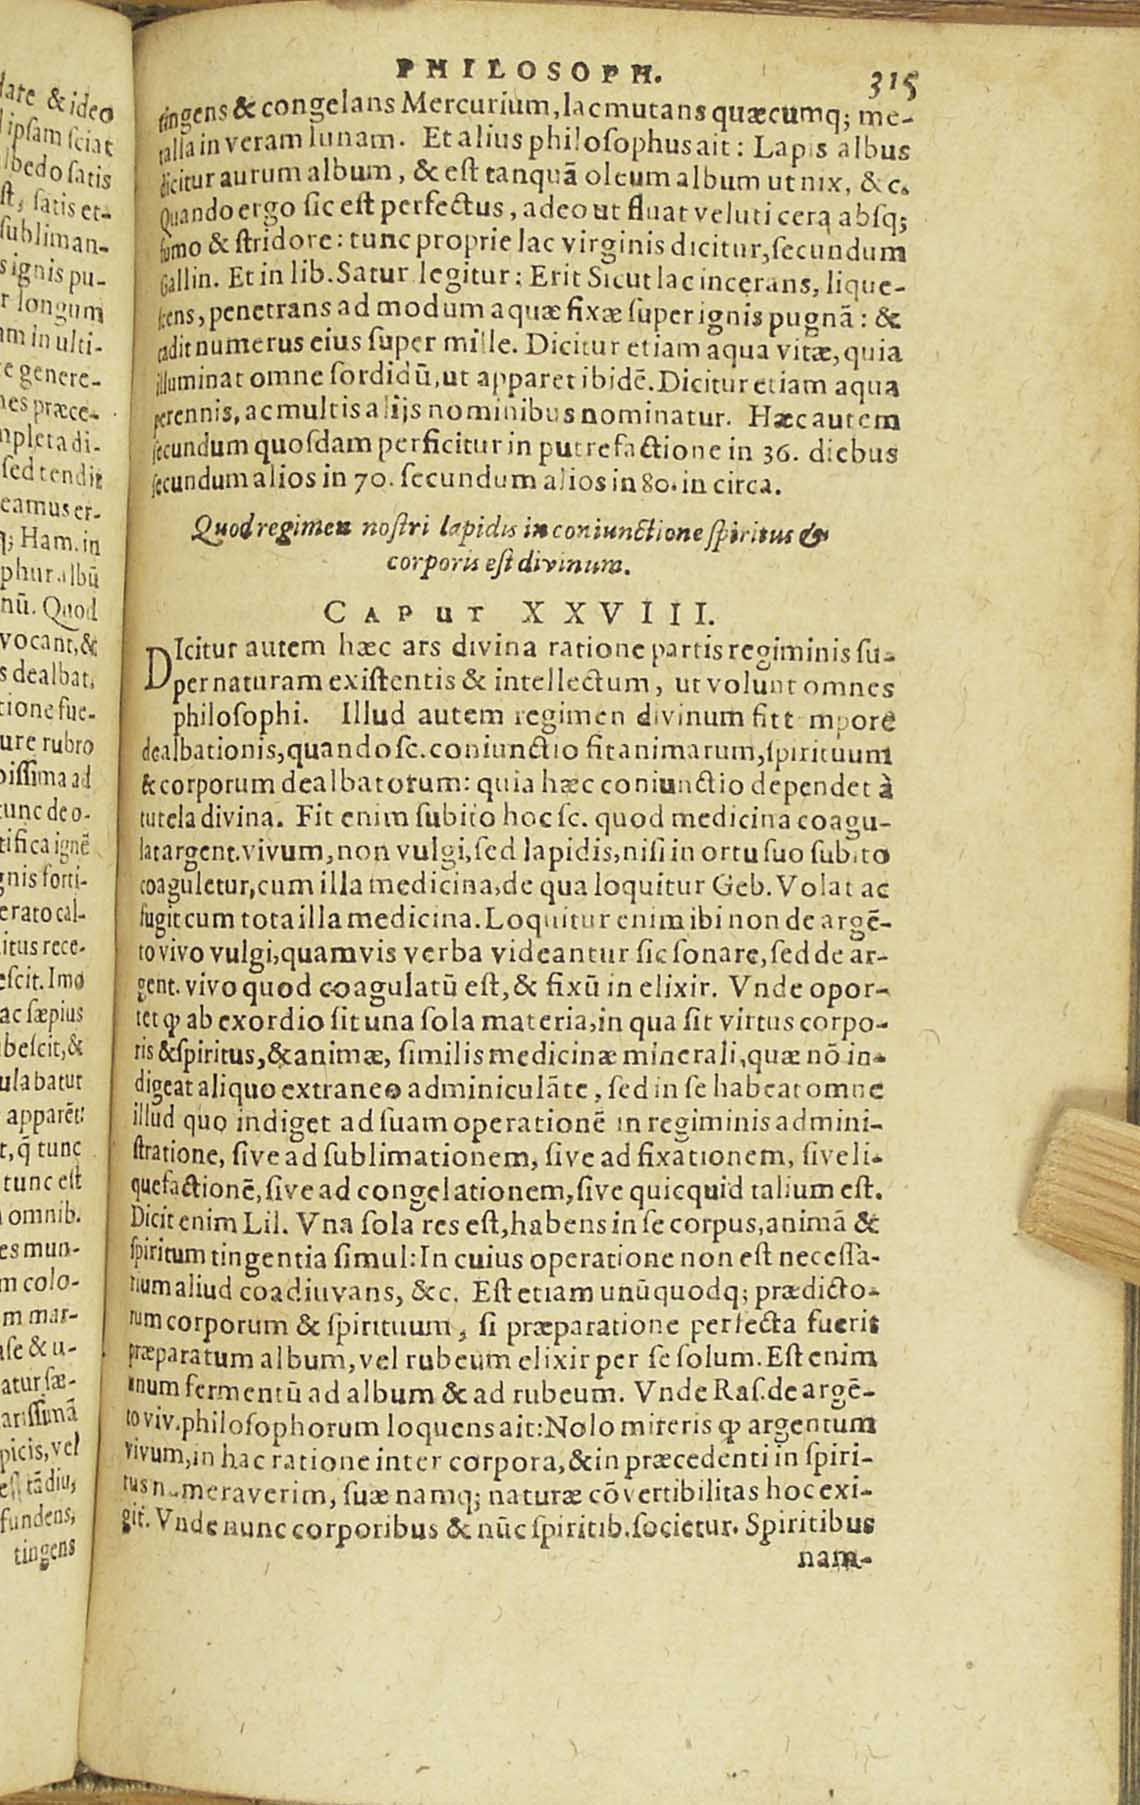 PHILOSOPH. 315
tingens & congelans Mercurium, lac mutans quæcumq; me-
talla in veram lunam. Et alius philosophus ait: Lapis albus
dicitur aurum album, & est tanquā oleum album ut nix, & c.
Quando ergo sic est perfectus, adeo ut fluat veluti cera absq;
fumo & stridore: tunc proprie lac virginis dicitur, secundum
Gallin. Et in lib. Satur legitur: Erit Sicut lac incerans, lique-
scens, penetrans ad modum aquæ fixæ super ignis pugnā: &
cadit numerus eius super mille. Dicitur etiam aqua vitæ, quia
illuminat omne sordidū, ut apparet ibidē. Dicitur etiam aqua
perennis, ac multis alijs nominibus nominatur. Hæc autem
secundum quosdam perficitur in putrefactione in 36. diebus
secundum alios in 70. secundum alios in 80. in circa.
Quod regimen nostri lapidis in coniunctione spiritus &
corporis est divinum.
CAPUT XXVIII.
DIcitur autem hæc ars divina ratione partis regiminis su-
pernaturam existentis & intellectum, ut volunt omnes
philosophi. Illud autem regimen divinum fit t mpore
dealbationis, quando sc. coniunctio fit animarum, spirituum
& corporum dealbatorum: quia hæc coniunctio dependet à
tutela divina. Fit enim subito hoc sc. quod medicina coagu-
lat argent. vivum, non vulgi, sed lapidis, nisi in ortu suo subito
coaguletur, cum illa medicina, de qua loquitur Geb. Volat ac
fugit cum tota illa medicina. Loquitur enim ibi non de argē-
to vivo vulgi, quamvis verba videantur sic sonare, sed de ar-
gent. vivo quod coagulatū est, & fixū in elixir. Vnde opor-
tet ꝙ ab exordio sit una sola materia, in qua sit virtus corpo-
ris & spiritus, & animæ, similis medicinæ minerali, quæ nō in-
digeat aliquo extraneo adminiculāte, sed in se habeat omne
illud quo indiget ad suam operationē in regiminis admini-
stratione, sive ad sublimationem, sive ad fixationem, sive li-
quefactionē, sive ad congelationem, sive quicquid talium est.
Dicit enim Lil. Vna sola res est, habens in se corpus, animā &
spiritum tingentia simul: In cuius operatione non est necessa-
rium aliud coadiuvans, &c. Est etiam unūquodq; prædicto-
rum corporum & spirituum, si præparatione perfecta fuerit
præparatum album, vel rubeum elixir per se solum. Est enim
unum fermentū ad album & ad rubeum. Vnde Ras. de argē-
to viv. philosophorum loquens ait: Nolo mireris ꝙ argentum
vivum, in hac ratione inter corpora, & in præcedenti in spiri-
tus n meraverim, suæ namq; naturæ cōvertibilitas hoc exi-
git. Vnde nunc corporibus & nūc spiritib. societur. Spiritibus
nam-
late & ideo
ipsam sciat
lbedo satis
st, satis et-
subliman-
s ignis pu-
r longum
am in ulti-
re genere-
nes præce-
mpleta di-
sed tendit
eamus er-
q; Ham. in
phur albū
nū. Quod
vocant, &
s dealbat,
tione fue-
ure rubro
oissima ad
tunc de o-
tifica ignē
gnis forti-
erato cal-
itus rece-
escit. Imo
ac sæpius
bescit, &
ula batur
apparēt:
t, q̃ tunc
tunc est
omnib.
es mun-
m colo-
m mar-
ase & u-
atur sæ-
arissimā
picis, vel
est tādiu,
fundens,
tingens